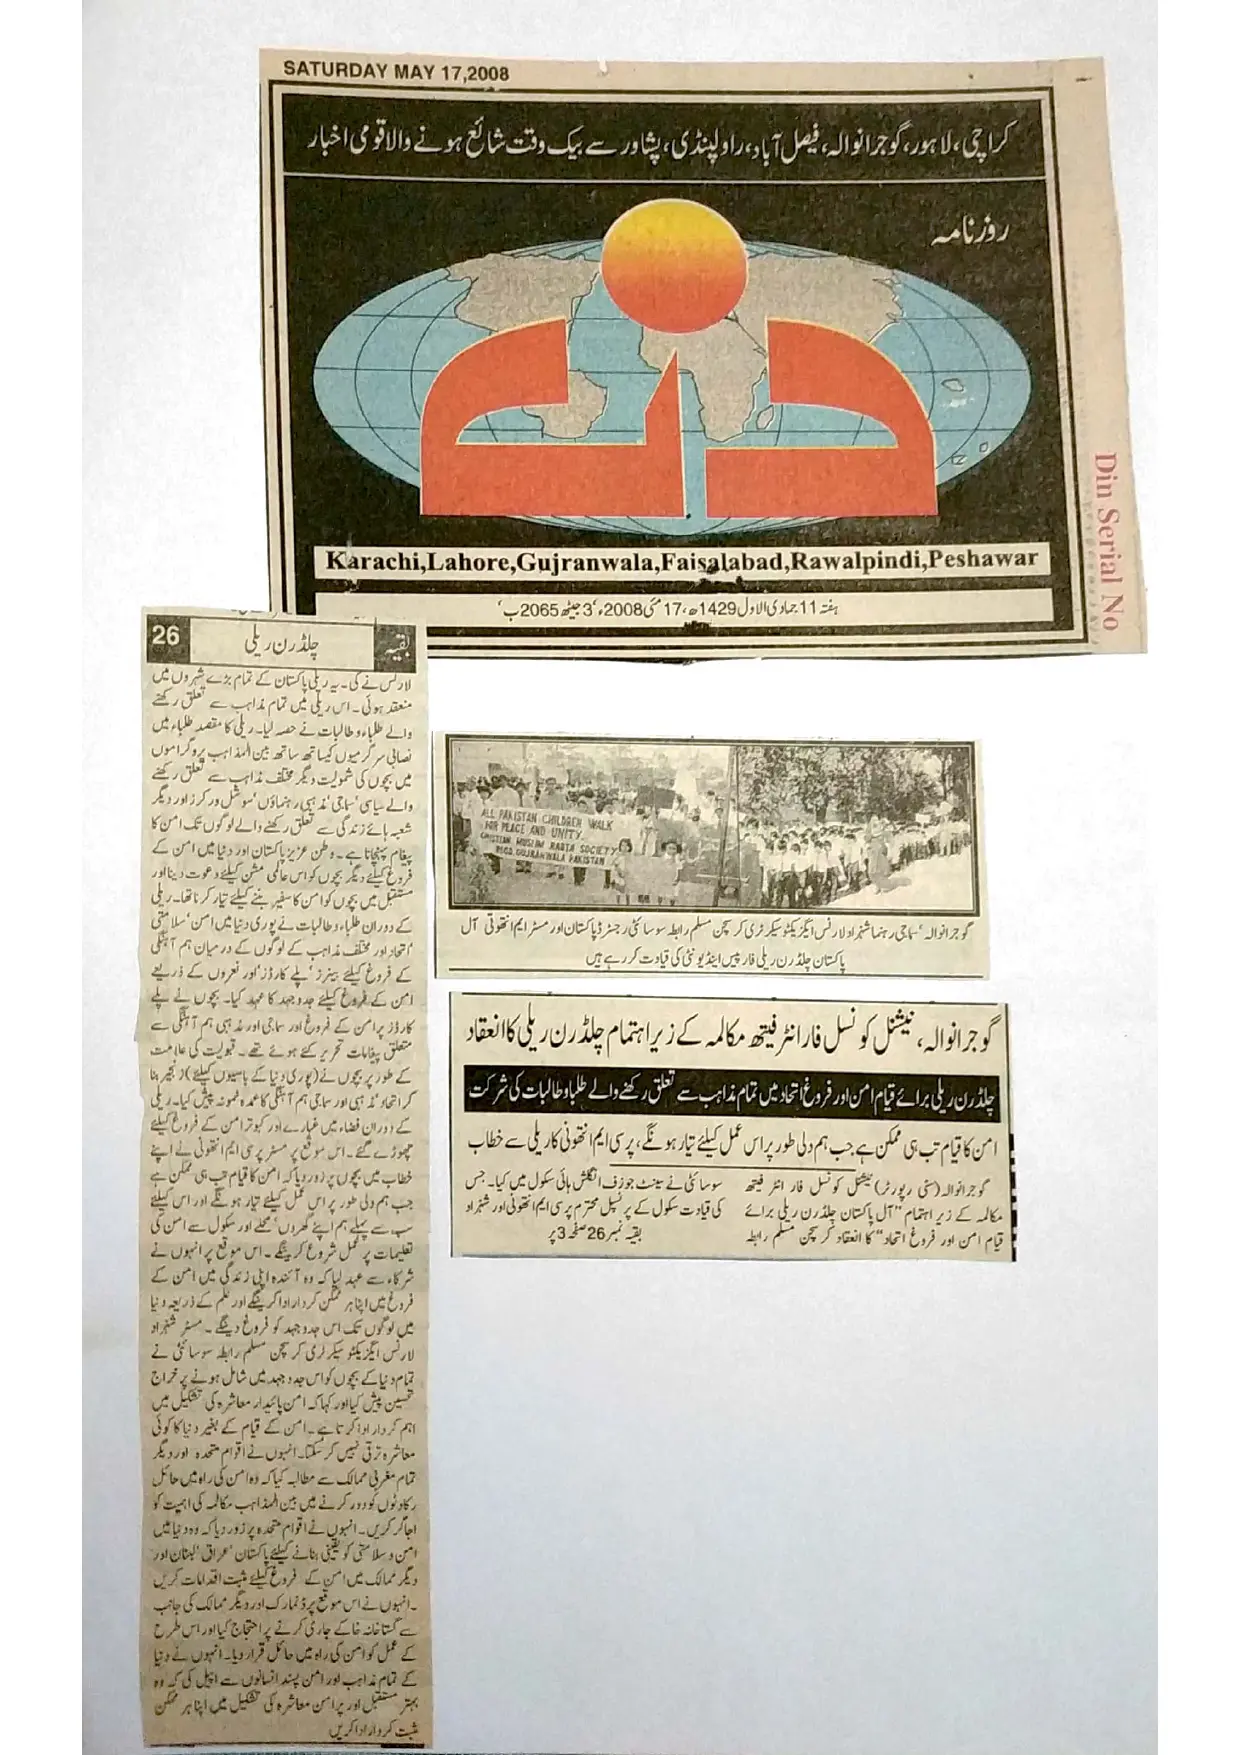 SATURDAY MAY 17,2008
کراچی، لاہور، گوجرانوالہ، فیصل آباد، راولپنڈی، پشاور سے بیک وقت شائع ہونے والا قومی اخبار
روزنامہ
دن
Karachi,Lahore,Gujranwala,Faisalabad,Rawalpindi,Peshawar
ہفتہ 11 جمادی الاول 1429ھ، 17 مئی 2008ء، 3 جیٹھ 2065ب
Din Serial No
ALL PAKISTAN CHILDREN WALK
FOR PLACE AND UNITY.
CHISTIAN MUSLIM RABTA SOCIETY
REGD. GUJRANWALA PAKISTAN
گوجرانوالہ، سماجی رہنما شہزاد لارنس ایگزیکٹو سیکرٹری کرسچن مسلم رابطہ سوسائٹی رجسٹرڈ پاکستان اور مسٹر ایم انتھونی آل
پاکستان چلڈرن ریلی فار پیس اینڈ یونٹی کی قیادت کر رہے ہیں
گوجرانوالہ، نیشنل کونسل فار انٹر فیتھ مکالمہ کے زیر اہتمام چلڈرن ریلی کا انعقاد
چلڈرن ریلی برائے قیام امن اور فروغ اتحاد میں تمام مذاہب سے تعلق رکھنے والے طلبا و طالبات کی شرکت
امن کا قیام تب ہی ممکن ہے جب ہم دلی طور پر اس عمل کیلئے تیار ہونگے، پرسی ایم انتھونی کا ریلی سے خطاب
گوجرانوالہ (سٹی رپورٹر) نیشنل کونسل فار انٹر فیتھ
مکالمہ کے زیر اہتمام "آل پاکستان چلڈرن ریلی برائے
قیام امن اور فروغ اتحاد" کا انعقاد کرسچن مسلم رابطہ
سوسائٹی نے سینٹ جوزف انگلش ہائی سکول میں کیا۔ جس
کی قیادت سکول کے پرنسپل محترم پرسی ایم انتھونی اور شہزاد
بقیہ نمبر 26 صفحہ 3 پر
بقیہ چلڈرن ریلی 26
لارنس نے کی۔ یہ ریلی پاکستان کے تمام بڑے شہروں میں
منعقد ہوئی۔ اس ریلی میں تمام مذاہب سے تعلق رکھنے
والے طلباء و طالبات نے حصہ لیا۔ ریلی کا مقصد طلباء میں
نصابی سرگرمیوں کیساتھ ساتھ بین المذاہب پروگراموں
میں بچوں کی شمولیت دیگر مختلف مذاہب سے تعلق رکھنے
والے سیاسی، سماجی، مذہبی رہنماؤں، سوشل ورکرز اور دیگر
شعبہ ہائے زندگی سے تعلق رکھنے والے لوگوں تک امن کا
پیغام پہنچانا ہے۔ وطن عزیز پاکستان اور دنیا میں امن کے
فروغ کیلئے دیگر بچوں کو اس عالمی مشن کیلئے دعوت دینا اور
مستقبل میں بچوں کو امن کا سفیر بننے کیلئے تیار کرنا تھا۔ ریلی
کے دوران طلباء و طالبات نے پوری دنیا میں امن، سلامتی
اتحاد اور مختلف مذاہب کے لوگوں کے درمیان ہم آہنگی
کے فروغ کیلئے بینرز، پلے کارڈز، اور نعروں کے ذریعے
امن کے فروغ کیلئے جدوجہد کا عہد کیا۔ بچوں نے پلے
کارڈز پر امن کے فروغ اور سماجی اور مذہبی ہم آہنگی سے
متعلق پیغامات تحریر کئے ہوئے تھے۔ قبولیت کی علامت
کے طور پر بچوں نے (پوری دنیا کے باسیوں کیلئے) زنجیر بنا
کر اتحاد، مذہبی اور سماجی ہم آہنگی کا عمدہ نمونہ پیش کیا۔ ریلی
کے دوران فضاء میں غبارے اور کبوتر امن کے فروغ کیلئے
چھوڑے گئے۔ اس موقع پر مسٹر پرسی ایم انتھونی نے اپنے
خطاب میں بچوں پر زور دیا کہ امن کا قیام تب ہی ممکن ہے
جب ہم دلی طور پر اس عمل کیلئے تیار ہونگے اور اس کیلئے
سب سے پہلے ہم اپنے گھروں، محلے اور سکول سے امن کی
تعلیمات پر عمل شروع کرینگے۔ اس موقع پر انہوں نے
شرکاء سے عہد لیا کہ وہ آئندہ اپنی زندگی میں امن کے
فروغ میں اپنا ہر ممکن کردار ادا کرینگے اور علم کے ذریعہ دنیا
میں لوگوں تک اس جدوجہد کو فروغ دینگے۔ مسٹر شہزاد
لارنس ایگزیکٹو سیکرٹری کرسچن مسلم رابطہ سوسائٹی نے
تمام دنیا کے بچوں کو اس جدوجہد میں شامل ہونے پر خراج
تحسین پیش کیا اور کہا کہ امن پائیدار معاشرہ کی تشکیل میں
اہم کردار ادا کرتا ہے۔ امن کے قیام کے بغیر دنیا کا کوئی
معاشرہ ترقی نہیں کر سکتا۔ انہوں نے اقوام متحدہ اور دیگر
تمام مغربی ممالک سے مطالبہ کیا کہ وہ امن کی راہ میں حائل
رکاوٹوں کو دور کرنے میں بین المذاہب مکالمہ کی اہمیت کو
اجاگر کریں۔ انہوں نے اقوام متحدہ پر زور دیا کہ وہ دنیا میں
امن و سلامتی کو یقینی بنانے کیلئے پاکستان، عراق، لبنان اور
دیگر ممالک میں امن کے فروغ کیلئے مثبت اقدامات کریں
۔ انہوں نے اس موقع پر ڈنمارک اور دیگر ممالک کی جانب
سے گستاخانہ خاکے جاری کرنے پر احتجاج کیا اور اس طرح
کے عمل کو امن کی راہ میں حائل قرار دیا۔ انہوں نے دنیا
کے تمام مذاہب اور امن پسند انسانوں سے اپیل کی کہ وہ
بہتر مستقبل اور پرامن معاشرہ کی تشکیل میں اپنا ہر ممکن
مثبت کردار ادا کریں